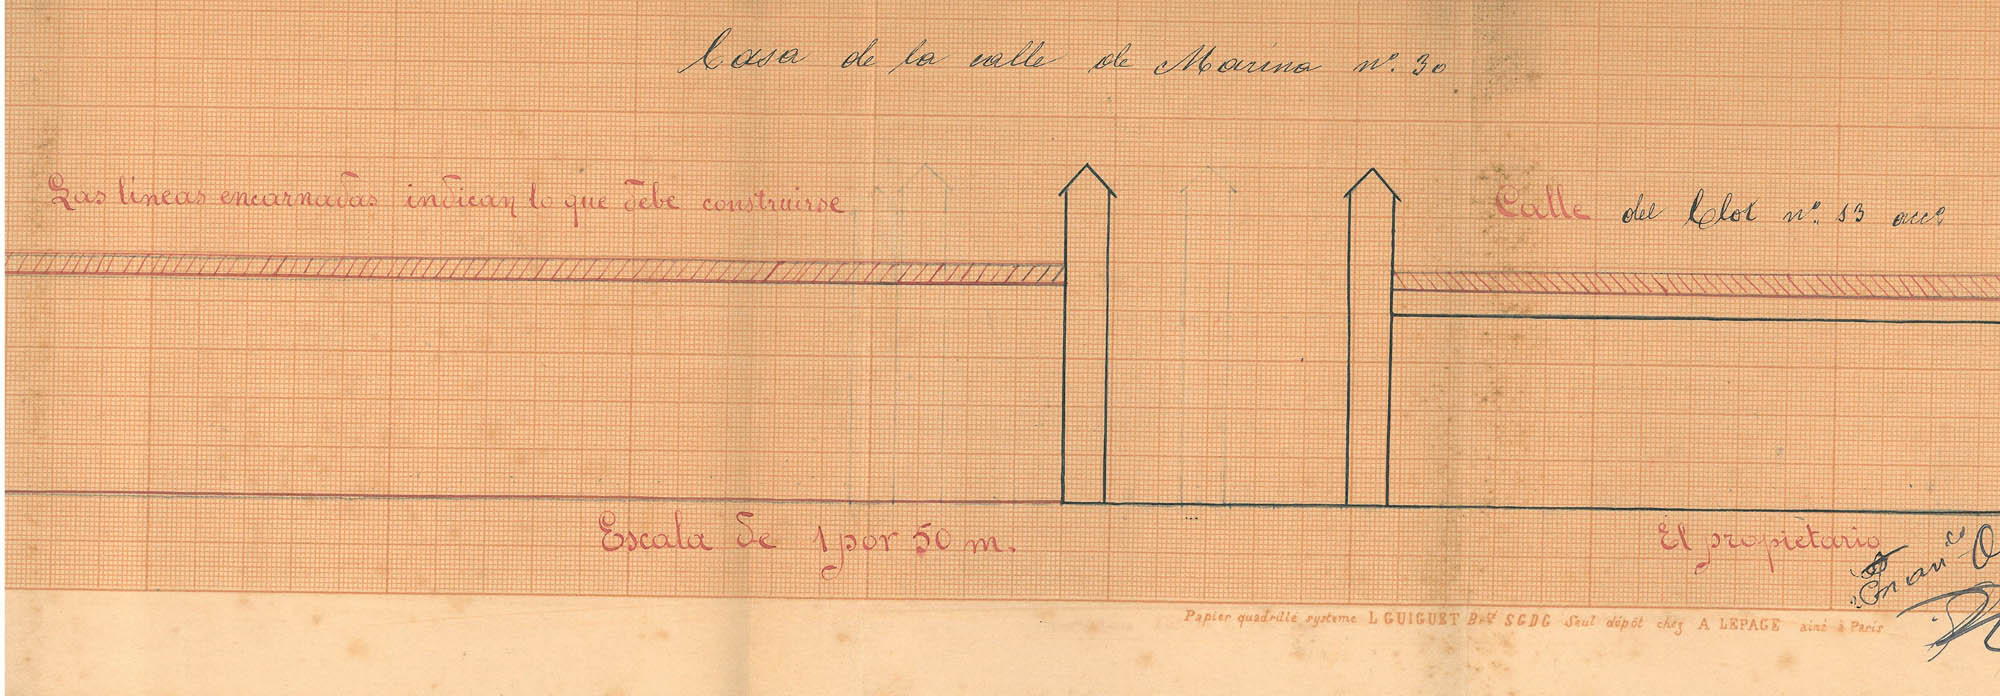 Casa de la calle de Marina nº. 30
Las líneas encarnadas indican lo que debe construirse
Calle del Clot nº. 13 accº
Escala de 1 por 50 m.
El propietario
Franco
Papier quadrillé systeme L GUIGUET Bté SGDG Seul dépôt chez A LEPAGE ainé à Paris